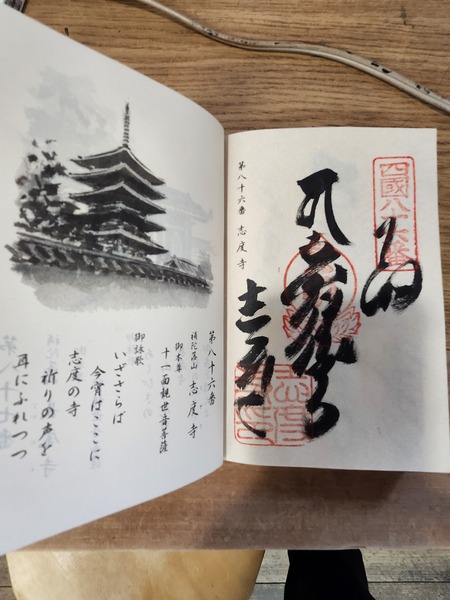 四國八十六番
第八十六番 志度寺
第八十六番
補陀落山 志度寺
御本尊
十一面観世音菩薩
御詠歌
いざさらば
今宵はここに
志度の寺
祈りの声を
耳にふれつつ